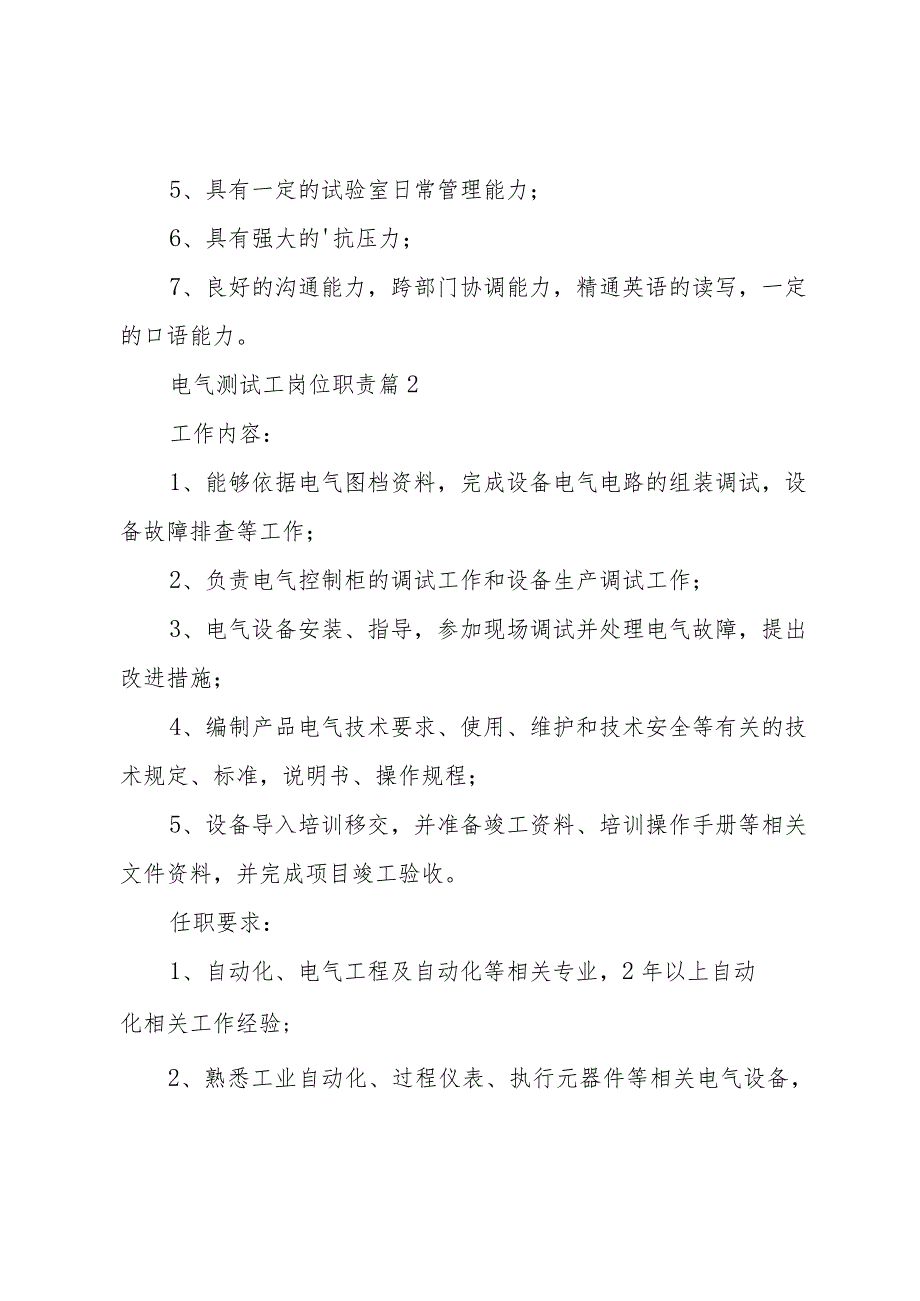 5、具有一定的试验室日常管理能力；
6、具有强大的'抗压力；
7、良好的沟通能力，跨部门协调能力，精通英语的读写，一定
的口语能力。
电气测试工岗位职责篇2
工作内容：
1、能够依据电气图档资料，完成设备电气电路的组装调试，设
备故障排查等工作；
2、负责电气控制柜的调试工作和设备生产调试工作；
3、电气设备安装、指导，参加现场调试并处理电气故障，提出
改进措施；
4、编制产品电气技术要求、使用、维护和技术安全等有关的技
术规定、标准，说明书、操作规程；
5、设备导入培训移交，并准备竣工资料、培训操作手册等相关
文件资料，并完成项目竣工验收。
任职要求：
1、自动化、电气工程及自动化等相关专业，2年以上自动
化相关工作经验；
2、熟悉工业自动化、过程仪表、执行元器件等相关电气设备，